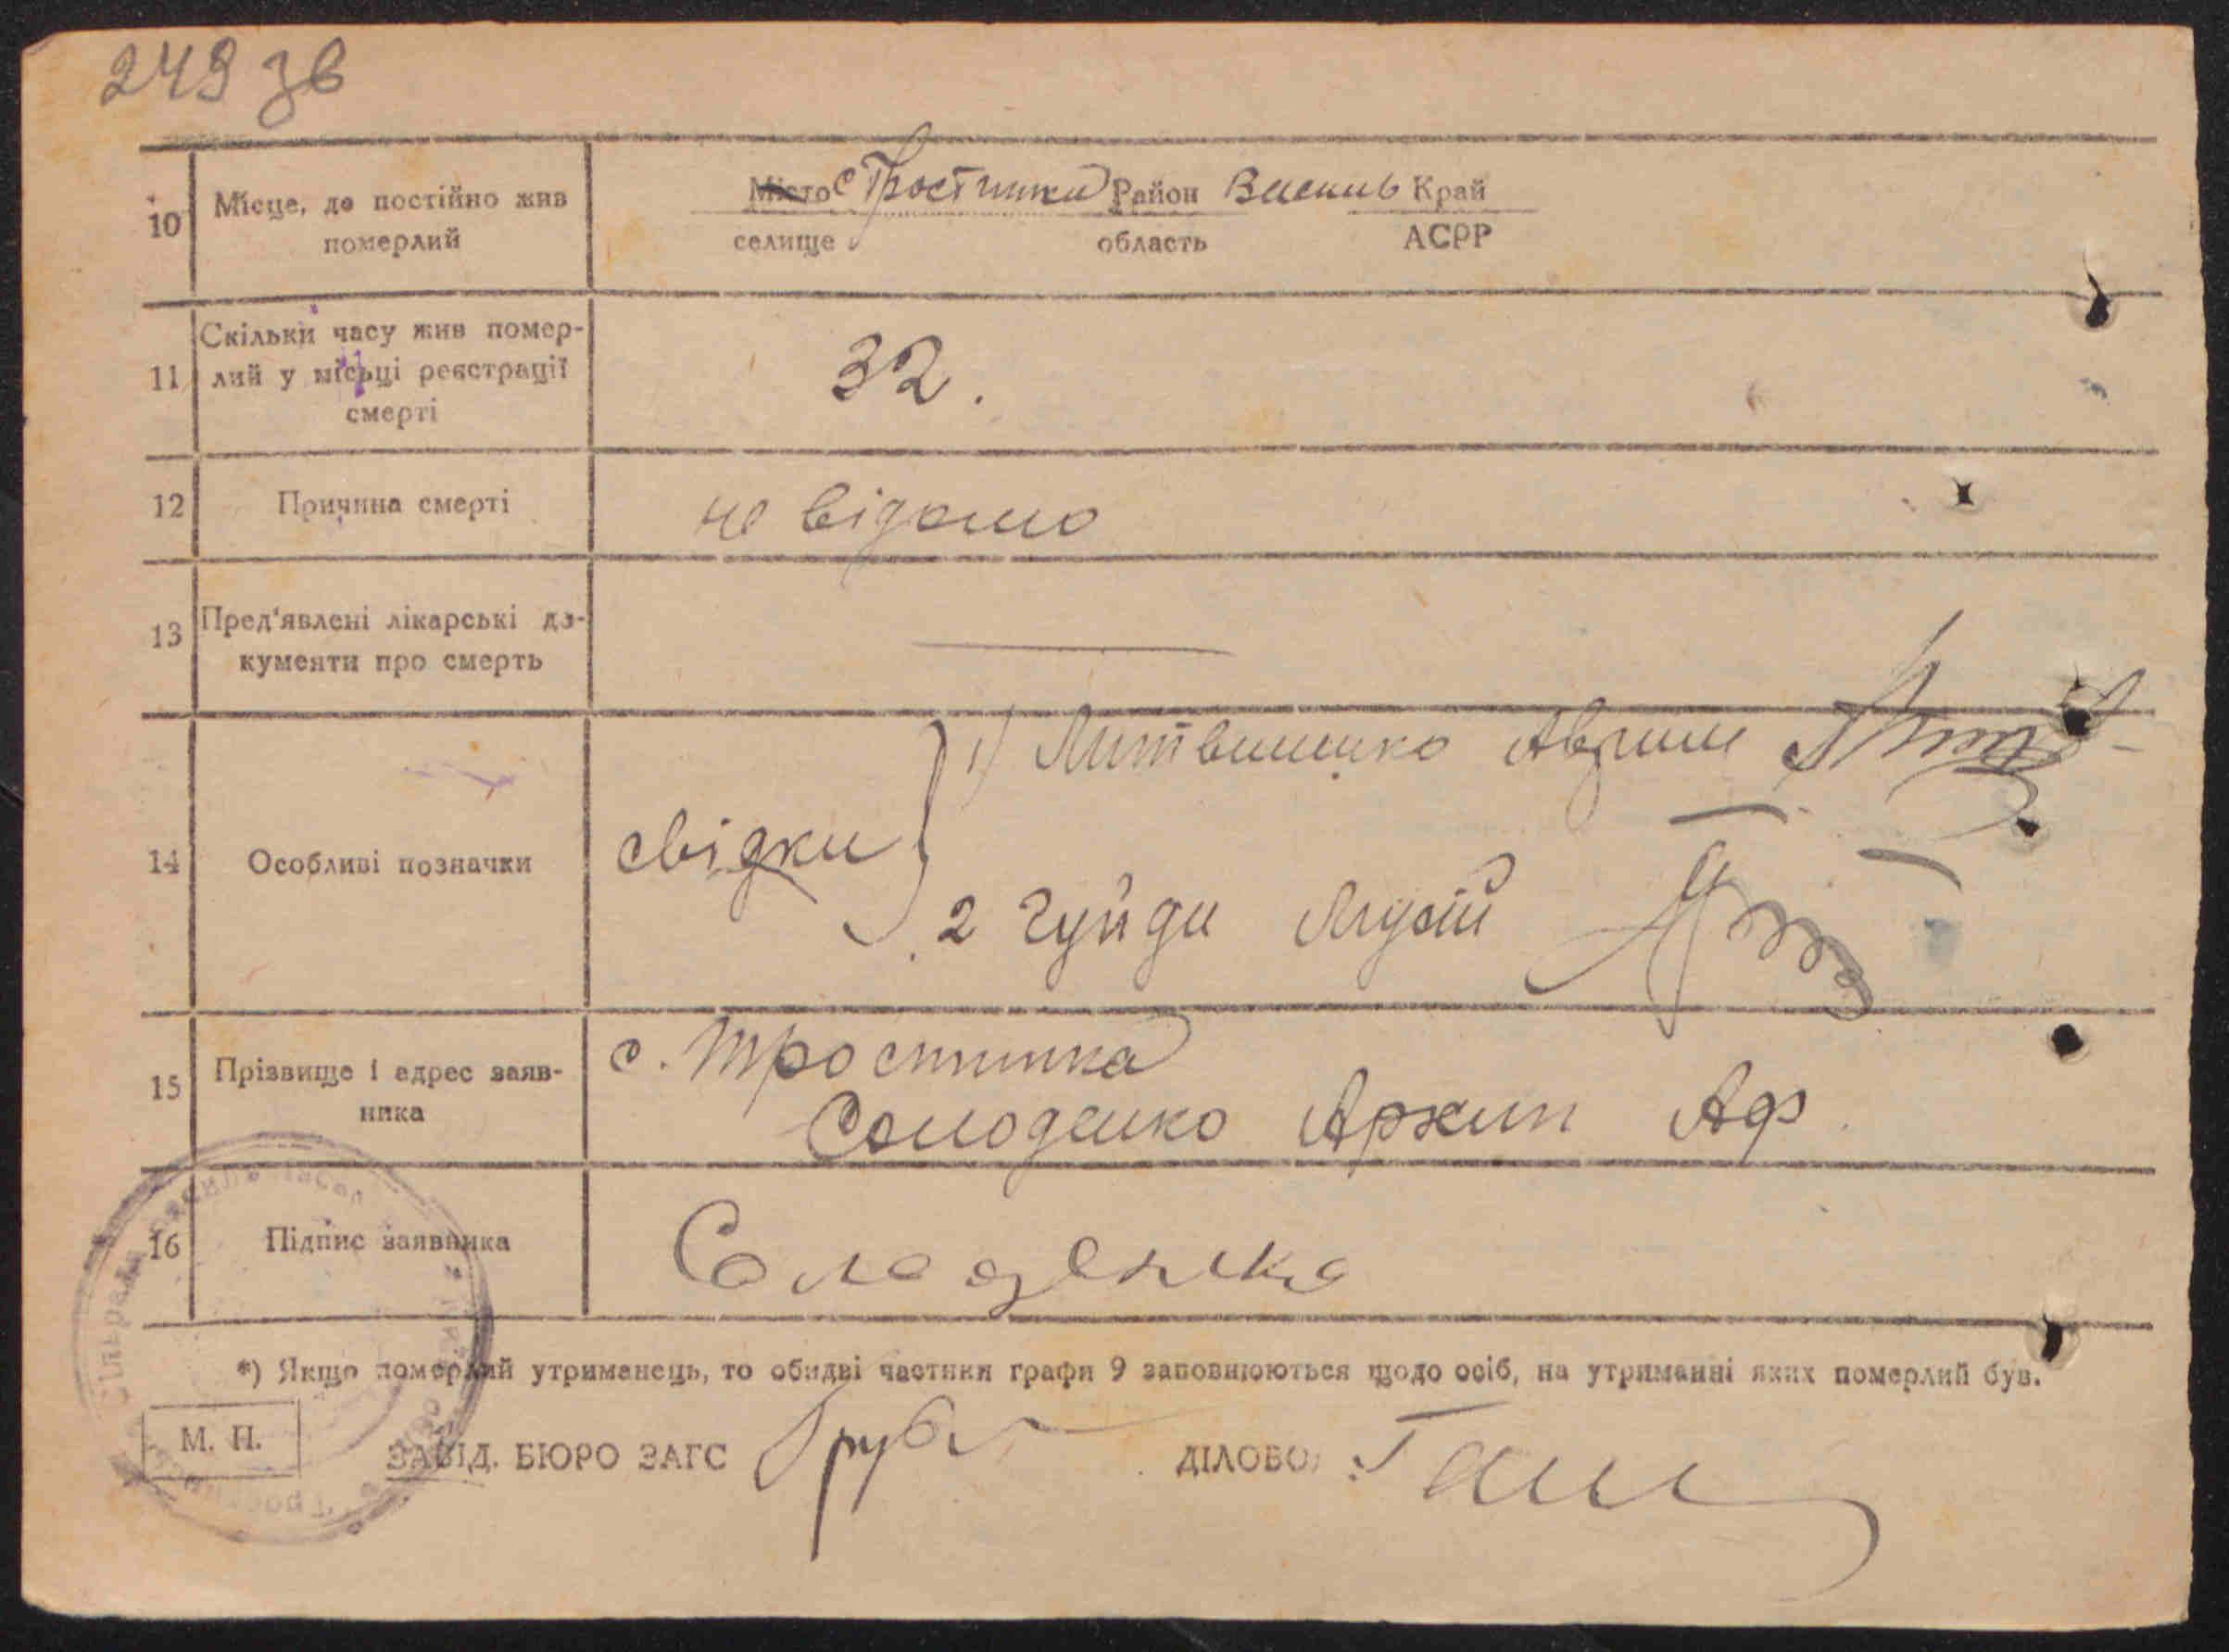 249 зв
10 Місце, де постійно жив померлий
Місто с Тростинка Район Васильв Край
селище область АСРР
11 Скільки часу жив помер-
лий у місьці реєстрації
смерті
32.
12 Причина смерті не відомо
13 Пред'явлені лікарські до-
кументи про смерть
14 Особливі позначки
свідки
1) Литвиненко
2 Гуйди Мусій
15 Прізвище і адрес заяв-
ника
с. Тростинка
Солоденко Архип Аф.
16 Підпис заявника Солоденко
*) Якщо померлий утриманець, то обидві частини графи 9 заповнюються щодо осіб, на утриманні яких померлий був.
М. П.
ЗАВІД. БЮРО ЗАГС ДІЛОВОД